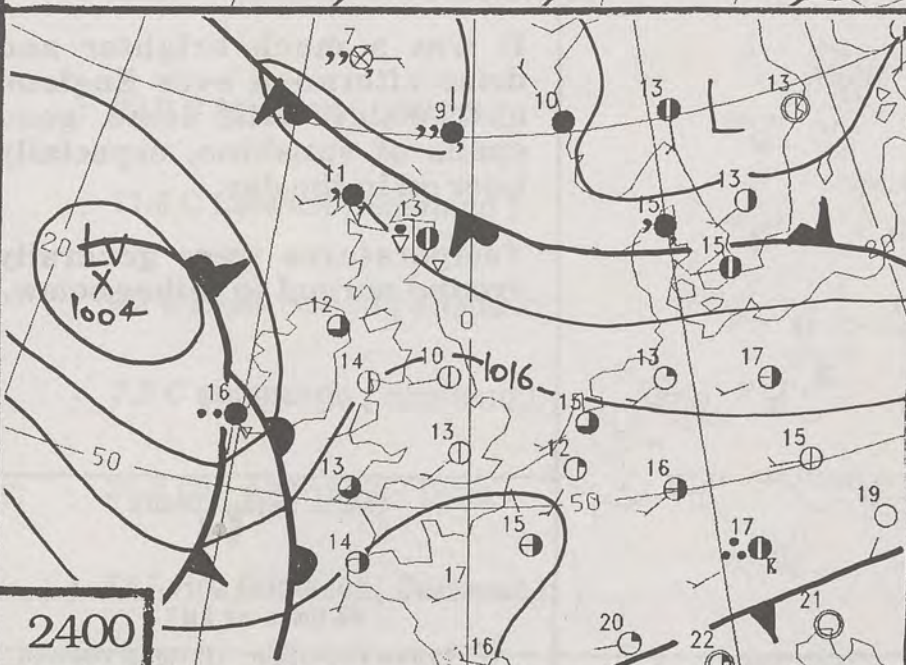 7
9
10
13
13
11
13
13
15
15
20
L
L
X
1004
20
12
14
10
0
1016
13
17
16
15
13
12
15
50
13
16
50
19
15
17
14
K
17
2400
20
21
22
16